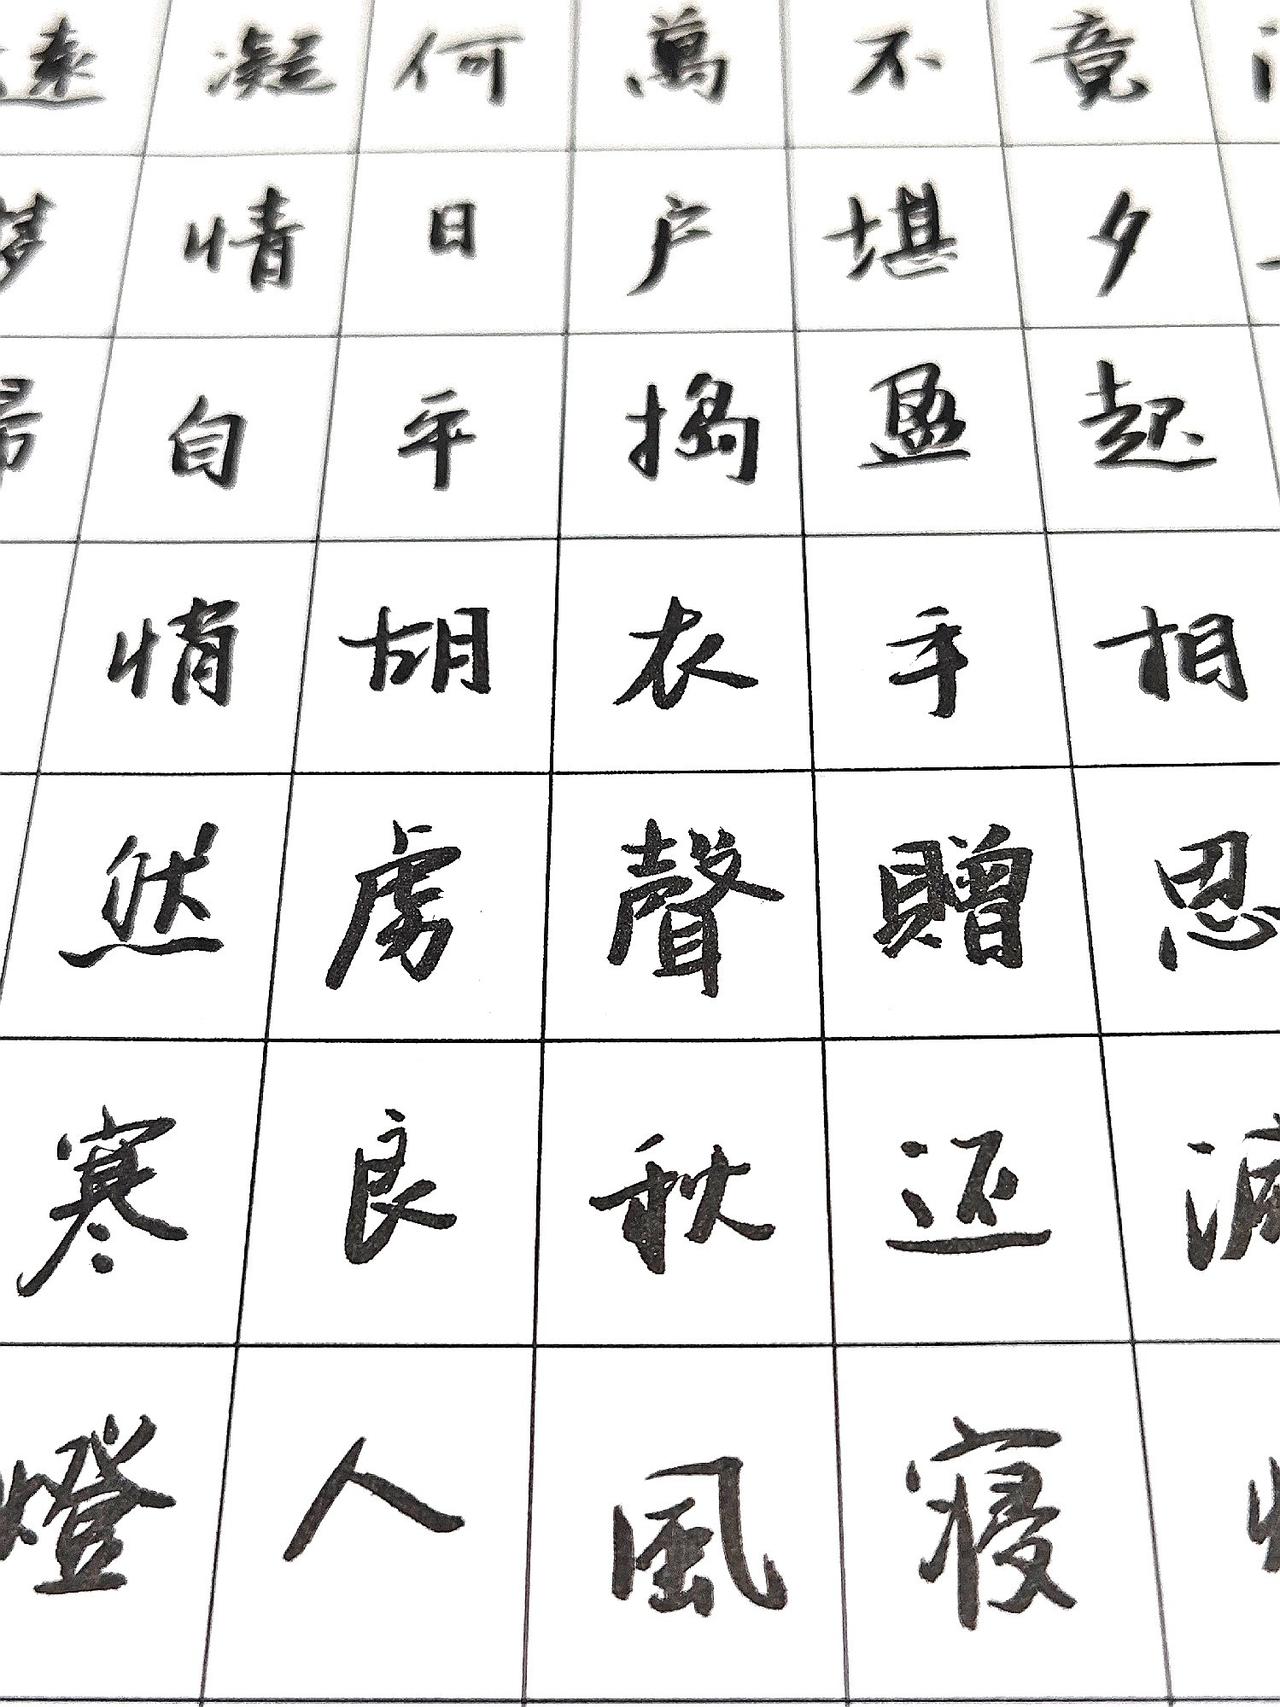 竟夕起相思滅
不堪盈手贈还寢
萬户搗衣聲秋風
何日平胡虜良人
凝情自悄然寒燈
遠夢歸